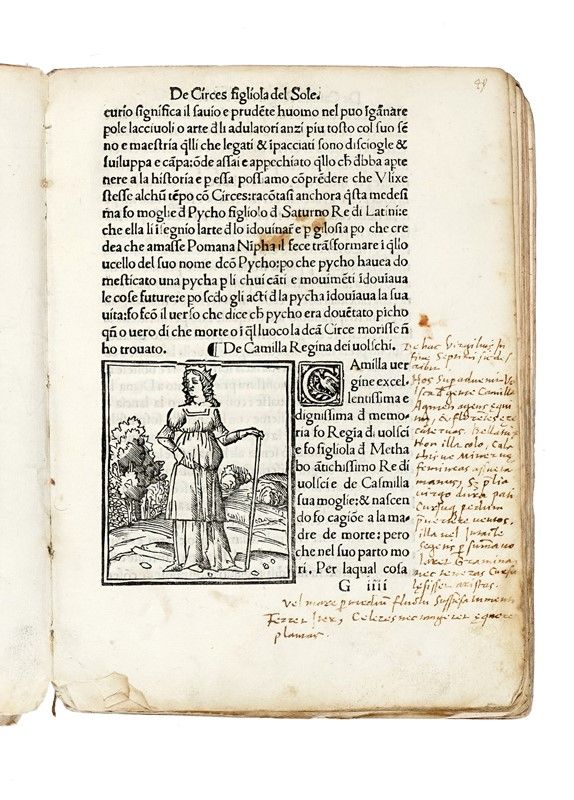 De Circes figliola del Sole.
curio significa il sauio e prudēte huomo nel puo īgānare
pole lacciuoli o arte dli adulatori anzi piu tosto col suo sē
no e maestria q̄lli che legati & īpacciati sono disciogle &
suiluppa e cāpa: ōde assai e appechiato q̄llo ch̄ dbba apte
nere a la historia e p essa possamo cōprēdere che Vlixe
stesse alchū tēpo cō Circes: racōtasi anchora q̄sta medesi
ma fo mogle d Pycho figliolo d Saturno Re di Latini: e
che ella li īsegnio larte d lo idouinar e p gilosia po che cre
dea che amasse Pomana Nipha il fece trāsformare ī q̄llo
ucello del suo nome dcō Pycho: po che pycho hauea do
mesticato una pycha p li chui cāti e mouimēti īdouiaua
le cose future: e po scdo gli acti d la pycha īdouiaua la sua
uita: fo fcō il uerso che dice ch̄ pycho era douētato picho
qn̄ o uero di che morte o ī q̄l luoco la dcā Circe morisse ñ
ho trouato. ¶ De Camilla Regina dei uolschi.
CAmilla uer
gine excel,
lentissima e
dignissima d memo,
ria fo Regīa di uolsci
e fo figliola d Metha
bo ātichissimo Re di
uolsci e de Casmilla
sua moglie: & nascen
do fo cagiōe a la ma,
dre de morte: pero
che nel suo parto mo
ri. Per laqual cosa
G iiii
De hac Virgilius in
fine Septimi sic des
Hos super aduenit Vo
lsca d gente Camilla
Agmen agens equi
tum & florentes ere
cateruas. Bellatrix
Non illa colo, Cala
thisue Mineruę
femineas assueta
manus, Sȝ prelia
virgo dura pati
Cursuq pedum
preuertere uentos.
illa uel Intacte
Segetis p summa uo
laret Gramina
nec teneras Cursu
lęsisset aristas.
Vel mare p medium fluctu Suspensa tumenti
Ferret Iter, Celeres nec tingeret equore
plantas.